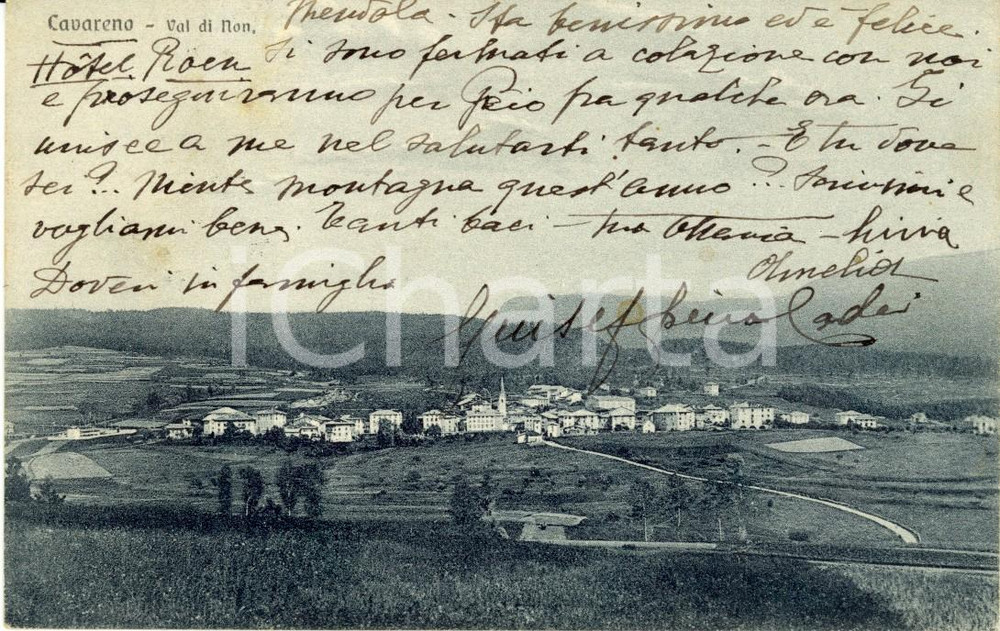 Cavareno - Val di Non.
Mendola. Sta benissimo ed è felice.
Hôtel Roen Si sono fermati a colazione con noi
e proseguiranno per Peio fra qualche ora. Si
unisce a me nel salutarti tanto. - E tu dove
sei?.. Niente montagna quest'anno?.. Scrivimi e
vogliami bene. Tanti baci - tua Ottavia -
Doveri in famiglia
iCharta